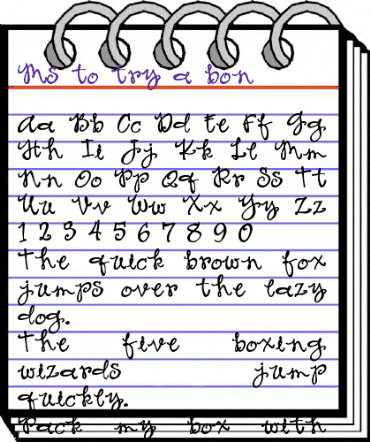 MS to try a bon
Aa Bb Cc Dd Ee Ff Gg
Hh Ii Jj Kk Ll Mm
Nn Oo Pp Qq Rr Ss Tt
Uu Vv Ww Xx Yy Zz
1 2 3 4 5 6 7 8 9 0
The quick brown fox
jumps over the lazy
dog.
The five boxing
wizards jump
quickly.
Pack my box with